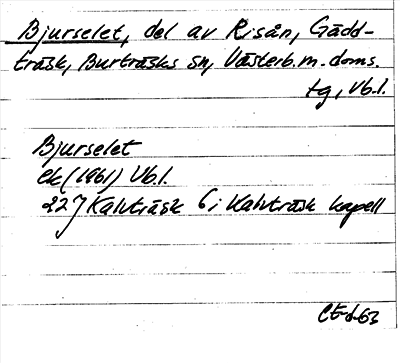 Bjurselet, del av Risån, Gädd-
träsk, Burträsks sn, Västerb. m. doms.
tg, Vb. l.
Bjurselet
ek (1961) Vb. l.
22J Kalvträsk 6 i Kalvträsk kapell